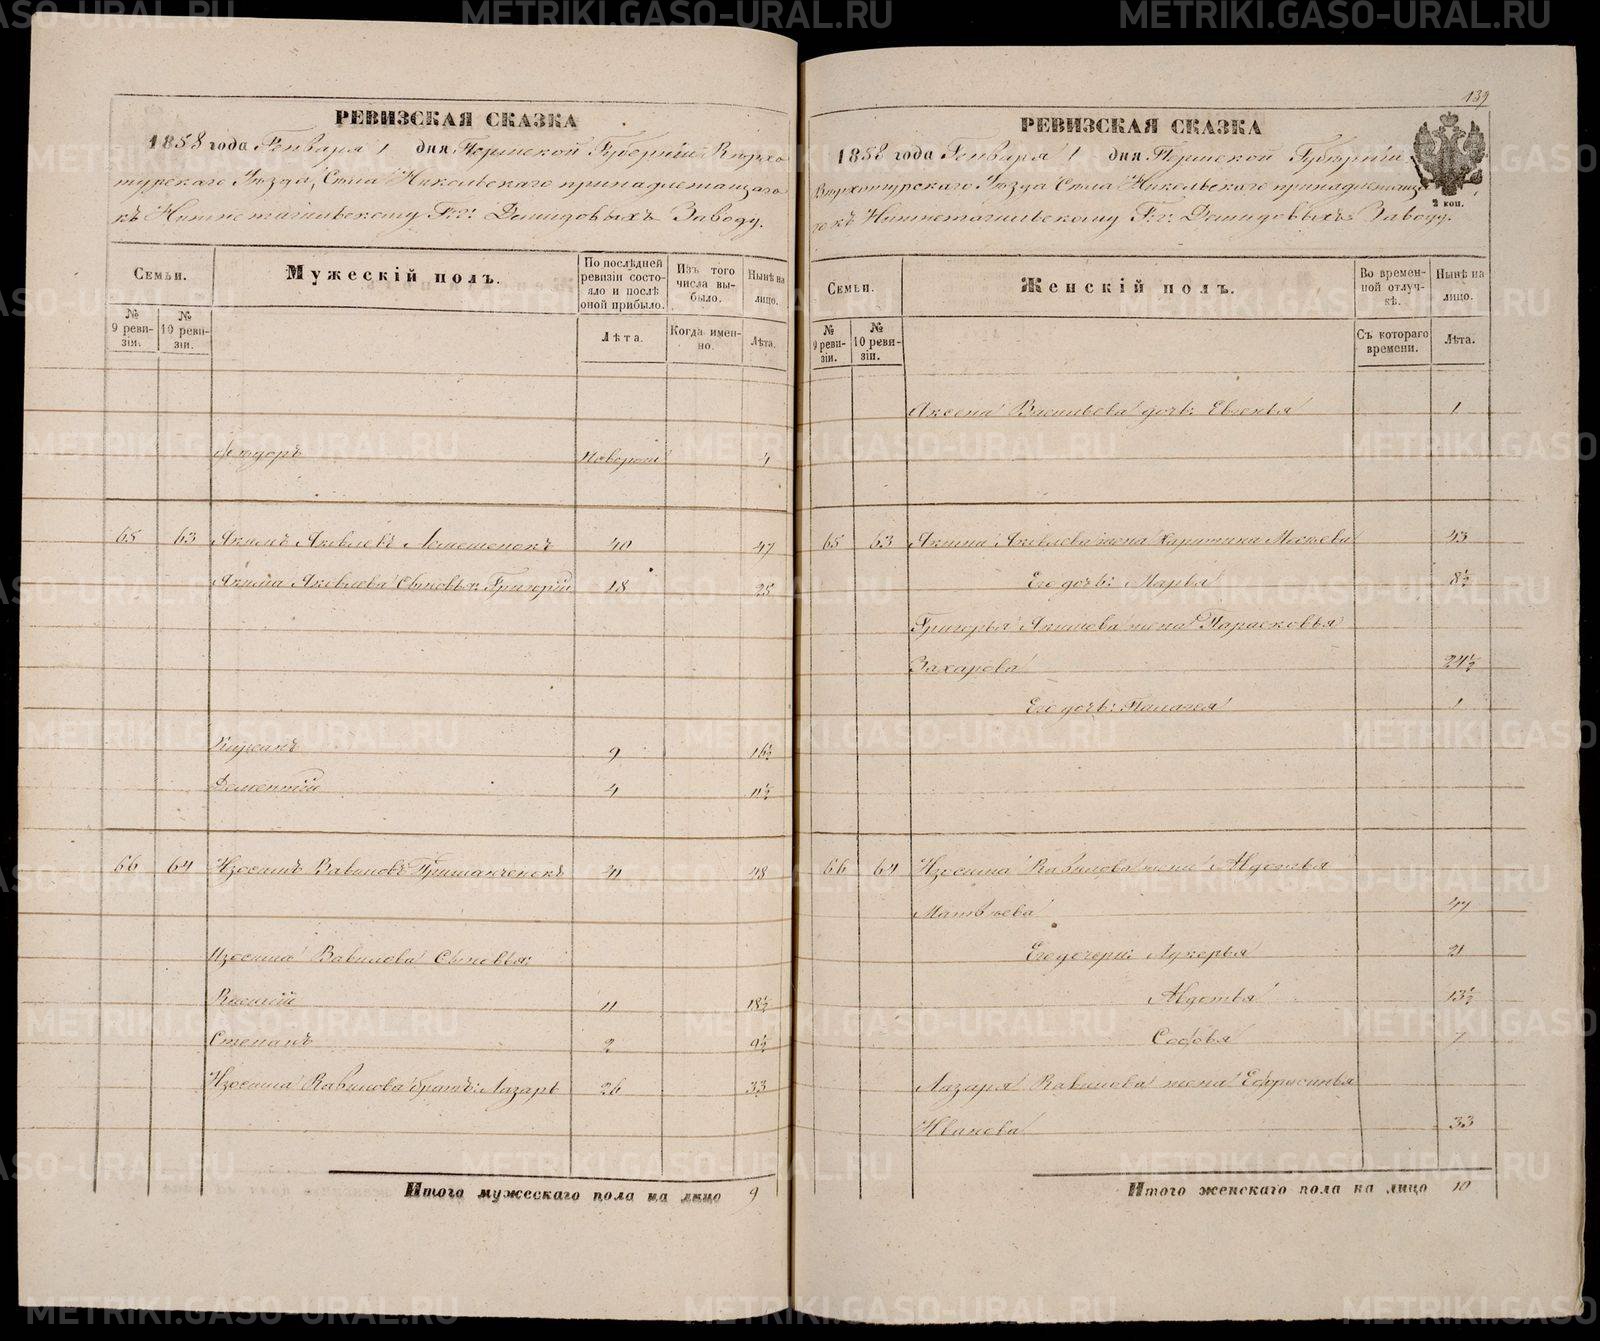 РЕВИЗСКАЯ СКАЗКА
1858 года Генваря 1 дня Пермской Губернiи Верхо
турскаго Уѣзда, Села Никольскаго принадлежащаго
къ Нижнетагильскому Г.г. Демидовыхъ Заводу.
Семьи.
Мужескiй полъ.
По послѣдней ревизiи состояло и послѣ оной прибыло.
Изъ того числа выбыло.
Нынѣ на лицо.
№ 9 ревизiи.
№ 10 ревизiи.
Лѣта.
Когда именно.
Лѣта.
4
65 63 Якимъ Яковлевъ 40 47
Якима Яковлева Сыновья: Григорiй 18 25
9 16½
Дементiй 4 11½
66 64 Изосимъ Вавиловъ 41 48
Изосима Вавилова Сыновья:
11 18½
Степанъ 2 9½
Изосима Вавилова братъ: Лазарь 26 33
Итого мужескаго пола на лицо 9
139
РЕВИЗСКАЯ СКАЗКА
1858 года Генваря 1 дня Пермской Губернiи
Верхотурскаго Уѣзда Села Никольскаго принадлежаща
го къ Нижнетагильскому Г.г. Демидовыхъ Заводу.
2 коп.
Семьи.
Женскiй полъ.
Во временной отлучкѣ.
Нынѣ на лицо.
№ 9 ревизiи.
№ 10 ревизiи.
Съ котораго времени.
Лѣта.
Васильева дочь: Евгенья 1
65 63 Якима Яковлева жена Харитина 43
Его дочь: Марья 8½
Григорья Якимова жена Парасковья
Захарова 24½
Его дочь: Палагея 1
66 64 Изосима Вавилова жена Авдотья
Матвѣева 47
Его дочери: Лукерья 21
Авдотья 13½
Софья 7
Лазаря Вавилова жена Ефросинья
Иванова 33
Итого женскаго пола на лицо 10
METRIKI.GASO-URAL.RU